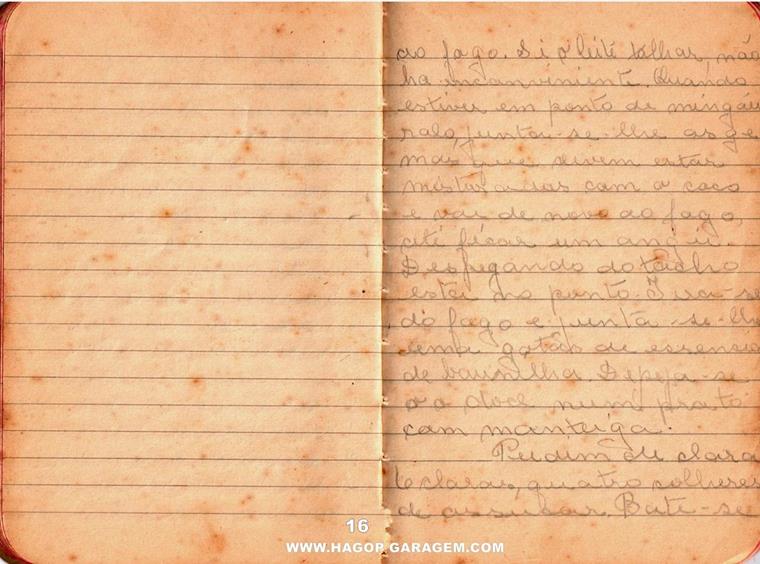 ao fogo. Si o leite talhar, não
ha inconveniente. Quando
estiver em ponto de mingáu
ralo, junta-se-lhe as ge
mas que devem estar
misturadas com o coco
e vai de novo ao fogo,
até ficar um angú.
Despegando do tacho
está no ponto. Tira-se
do fogo e junta-se-lhe
uma gotas de essencia
de baunilha. Depeja-se
o doce num prato
com manteiga.
Pudim de clara
6 claras, quatro colheres
de assucar. Bate-se
16
WWW.HAGOP.GARAGEM.COM